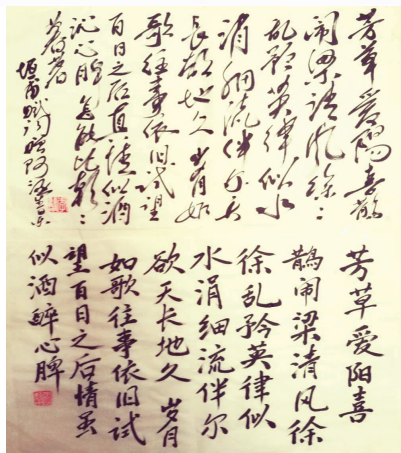 芳草爱阳喜鹊
闹梁语风徐
乱矜英律似水
涓细流伴尔天
长欲地久 岁月如
歌往事依旧试望
百日之后真情似酒
沁心脾 怎能比
芳草爱阳喜
鹊闹梁清风徐
徐乱矜英律似
水涓细流伴尔
欲天长地久 岁月
如歌往事依旧试
望百日之后情虽
似酒醉心脾